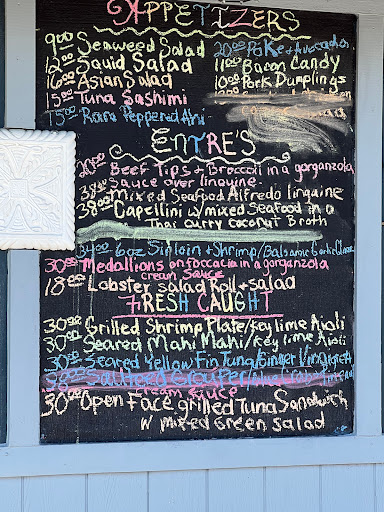 APPETIZERS
9.00 Seaweed Salad
12.00 Squid Salad
16.00 Asian Salad
15.00 Tuna Sashimi
15.00 Rare Peppered Ahi
20.00 Poke + Avocado
11.00 Bacon Candy
10.00 Pork Dumplings
ENTRE'S
Beef Tips + Broccoli in a gorganzola
Sauce over linguine
38.00 Mixed Seafood Alfredo linguine
38.00 Capellini w/mixed Seafood in a
Thai curry coconut Broth
34.00 6oz Sirloin + Shrimp/Balsamic Garlic Glaze
30.00 Medallions on foccacia in a gorganzola
cream Sauce
18.00 Lobster Salad Roll + salad
FRESH CAUGHT
30.00 Grilled Shrimp Plate/Key lime Aioli
30.00 Seared Mahi Mahi/Key lime Aioli
30.00 Seared Yellow Fin Tuna/Ginger Vinigrette
38.00 Sauteed Grouper/Blue Crab
Cream Sauce
30.00 Open Face grilled Tuna Sandwich
w mixed Green salad